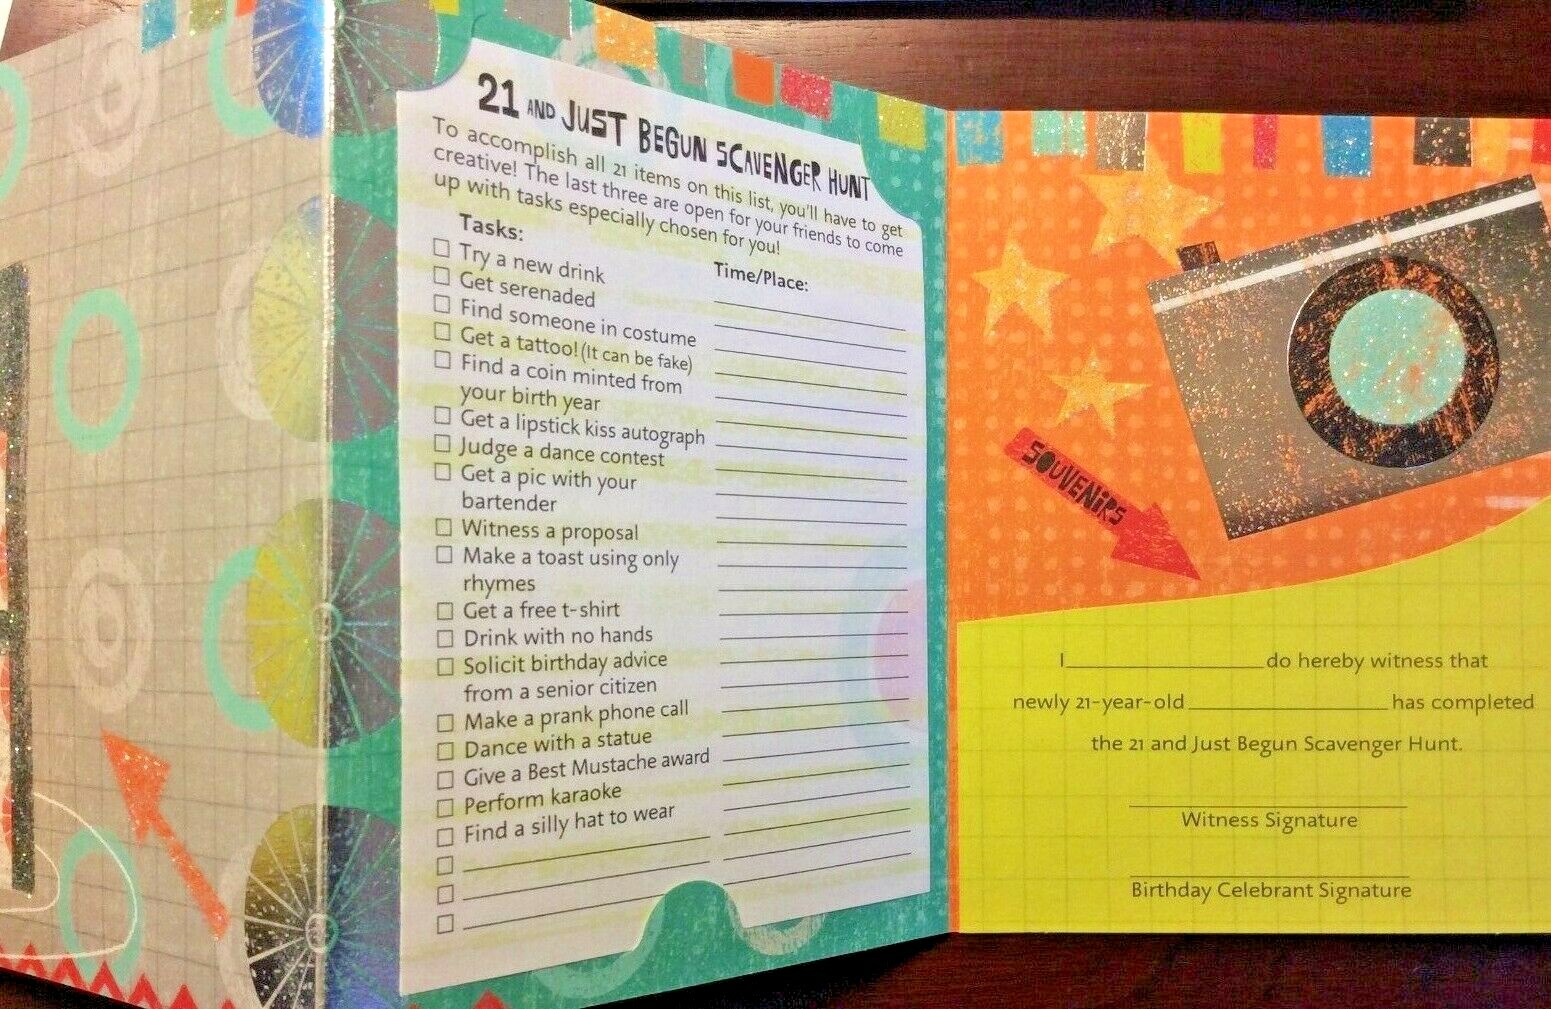 21 AND JUST BEGUN SCAVENGER HUNT
To accomplish all 21 items on this list, you'll have to get
creative! The last three are open for your friends to come
up with tasks especially chosen for you!
Tasks:
Time/Place:
Try a new drink
Get serenaded
Find someone in costume
Get a tattoo! (It can be fake)
Find a coin minted from
your birth year
Get a lipstick kiss autograph
Judge a dance contest
Get a pic with your
bartender
Witness a proposal
Make a toast using only
rhymes
Get a free t-shirt
Drink with no hands
Solicit birthday advice
from a senior citizen
Make a prank phone call
Dance with a statue
Give a Best Mustache award
Perform karaoke
Find a silly hat to wear
SOUVENIRS
I do hereby witness that
newly 21-year-old has completed
the 21 and Just Begun Scavenger Hunt.
Witness Signature
Birthday Celebrant Signature